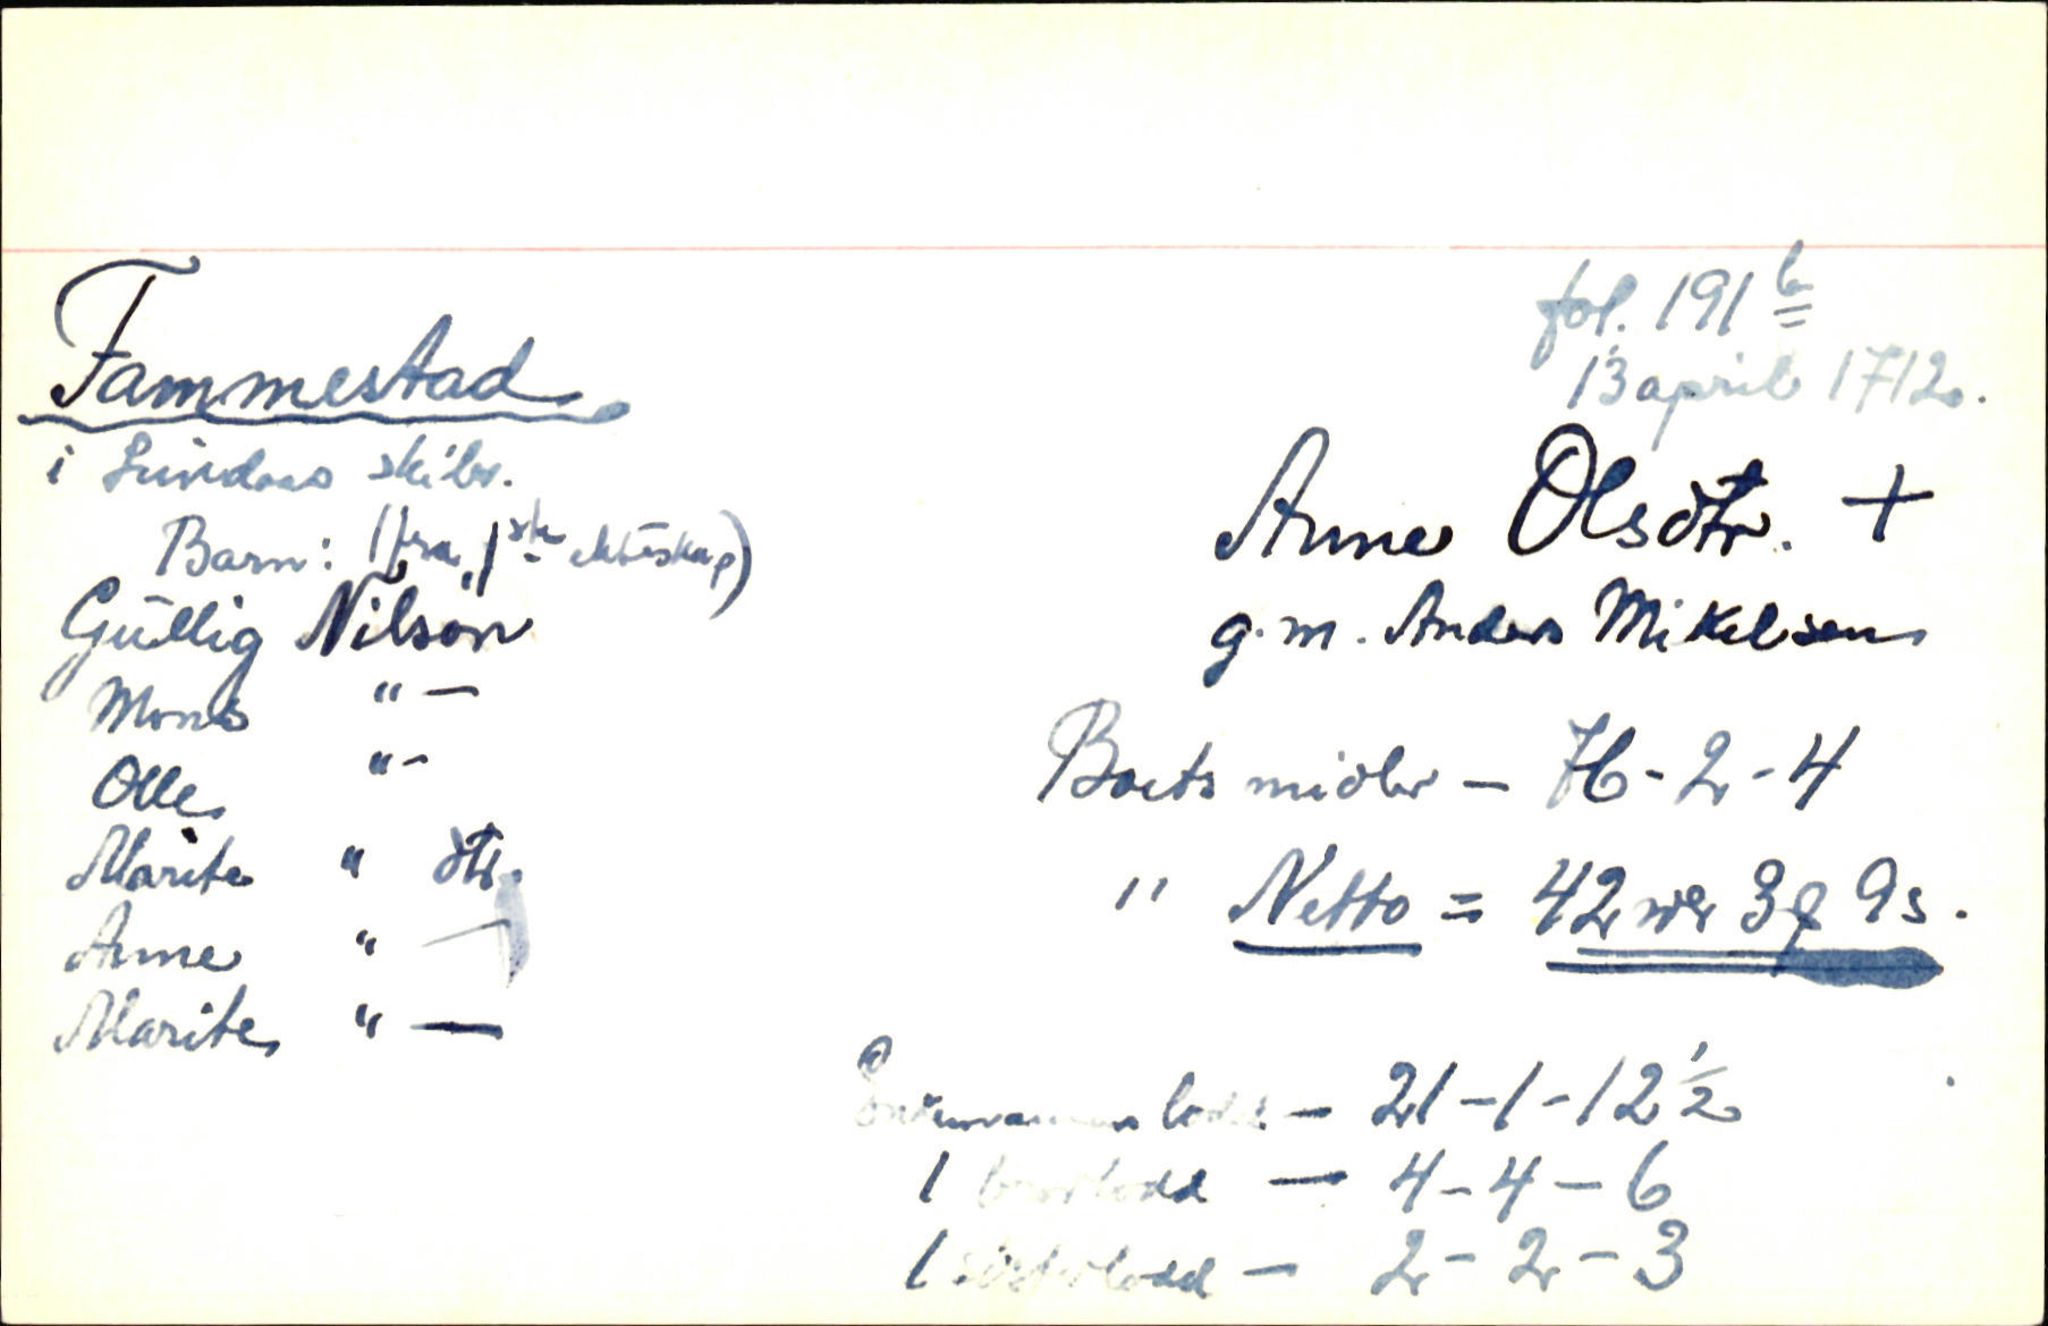 Fammestad
i Lindaas skibr.
Barn: (fra 1ste ekteskap)
Gullig Nilson
Mons " —
Olle " -
Marite " dtr.
Anne " —
Marite " —
fol. 191 b
13 april 1712.
Anne Olsdtr. +
g. m. Anders Mikelsen
Boets midler — 76 - 2 - 4
" Netto = 42 rdlr 3 q 9 s.
Enkemannens lodd — 21 - 1 - 12 1/2
1 broderlodd — 4 - 4 - 6
1 søsterlodd — 2 - 2 - 3